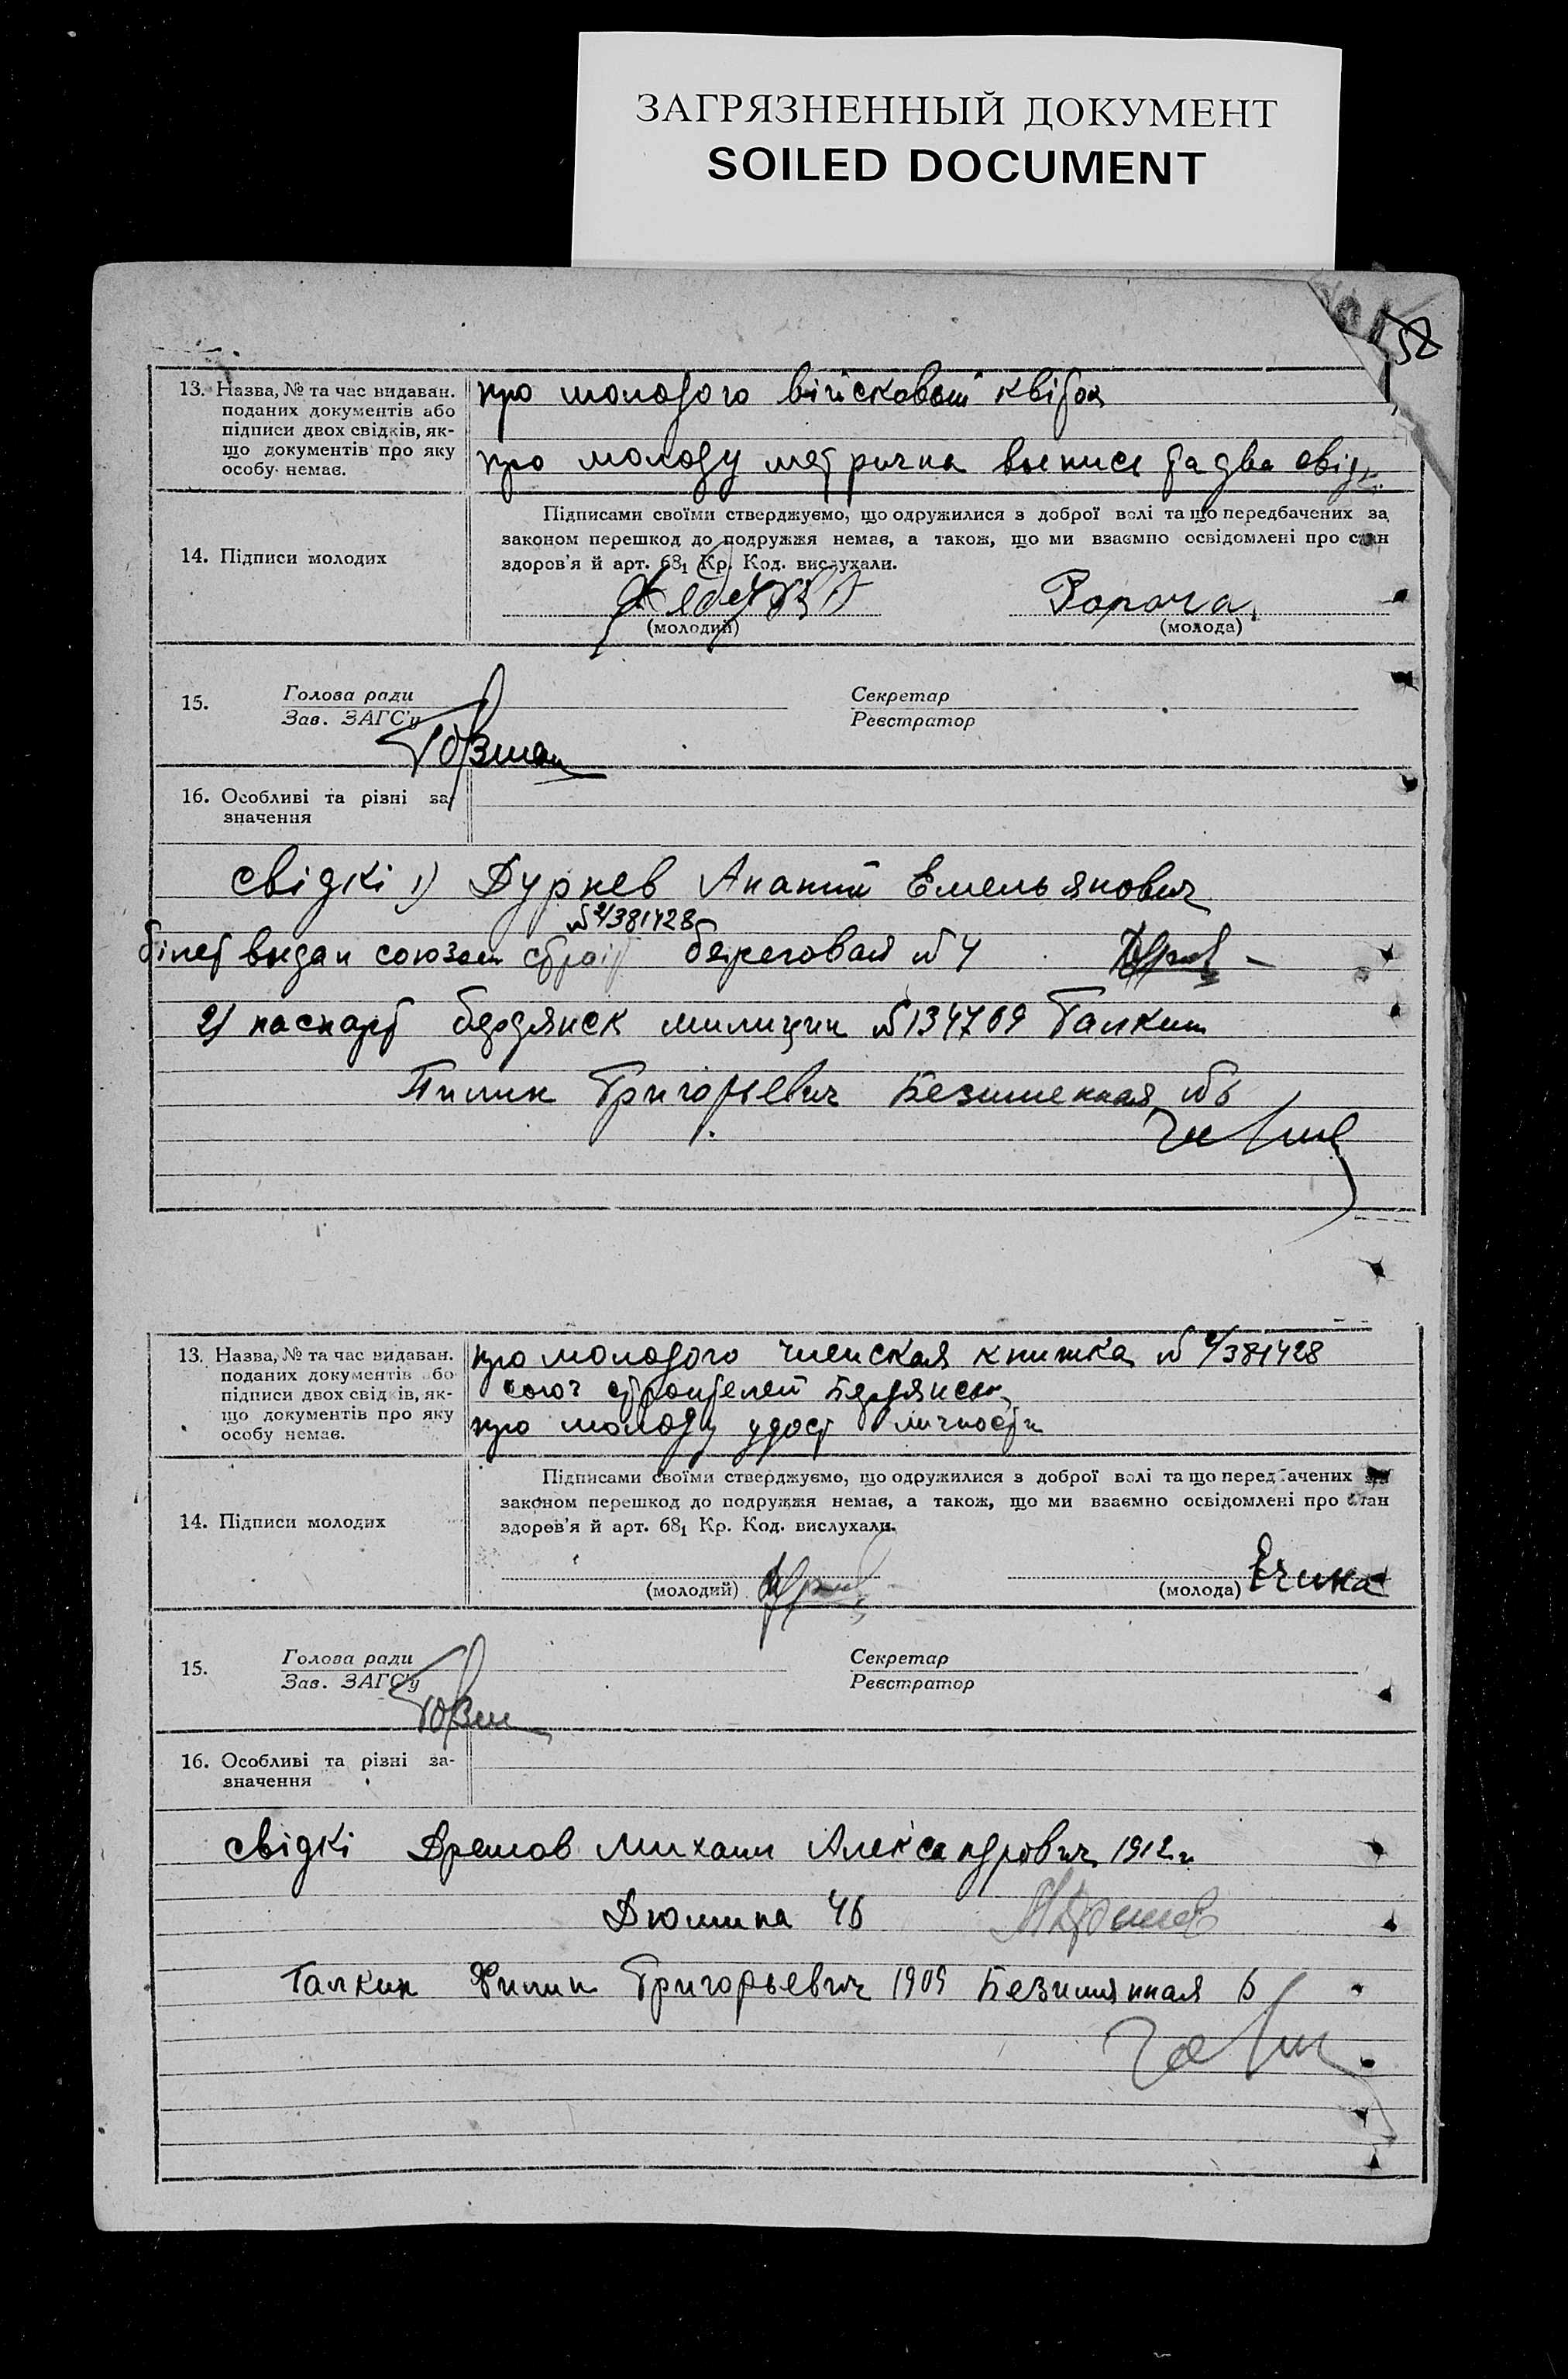 ЗАГРЯЗНЕННЫЙ ДОКУМЕНТ
SOILED DOCUMENT
58
13. Назва, № та час видаван. поданих документів або підписи двох свідків, якщо документів про яку особу немає.
про молодого військовый квіток
про молоду метрична выпись та два свідк.
14. Підписи молодих
Підписами своїми стверджуємо, що одружилися з доброї волі та що передбачених за
законом перешкод до подружжя немає, а також, що ми взаємно освідомлені про стан
здоров'я й арт. 68₁ Кр. Код. вислухали.
(молодий)
(молода)
15.
Голова ради
Зав. ЗАГС'у
Секретар
Реєстратор
16. Особливі та різні за-
значення
свідкі 1) Дурнев Ананий Емельянович
№ 2/381428
білет выдан союзом береговая № 4
2) паспорт бердянск милиции № 134769 Галкин
Пилип Григорьевич Безименная № 6
13. Назва, № та час видаван.
поданих документів або
підписи двох свідків, як-
що документів про яку
особу немає.
про молодого членская книжка № 2/381428
союз строителей Бердянськ
про молоду удост личности
14. Підписи молодих
Підписами своїми стверджуємо, що одружилися з доброї волі та що передбачених за
законом перешкод до подружжя немає, а також, що ми взаємно освідомлені про стан
здоров'я й арт. 68₁ Кр. Код. вислухали.
(молодий)
(молода)
15.
Голова ради
Зав. ЗАГС'у
Секретар
Реєстратор
16. Особливі та різні за-
значення
свідкі Дремов Михаил Александрович 1912 г.
Дюмина 46
Галкин Филип Григорьевич 1909 Безимянная 6